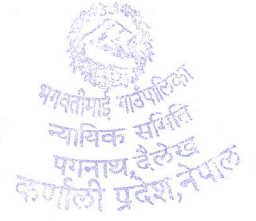 भगवतीमाई गाउँपालिका
न्यायिक समिति
पगनाथ, दैलेख
कर्णाली प्रदेश, नेपाल